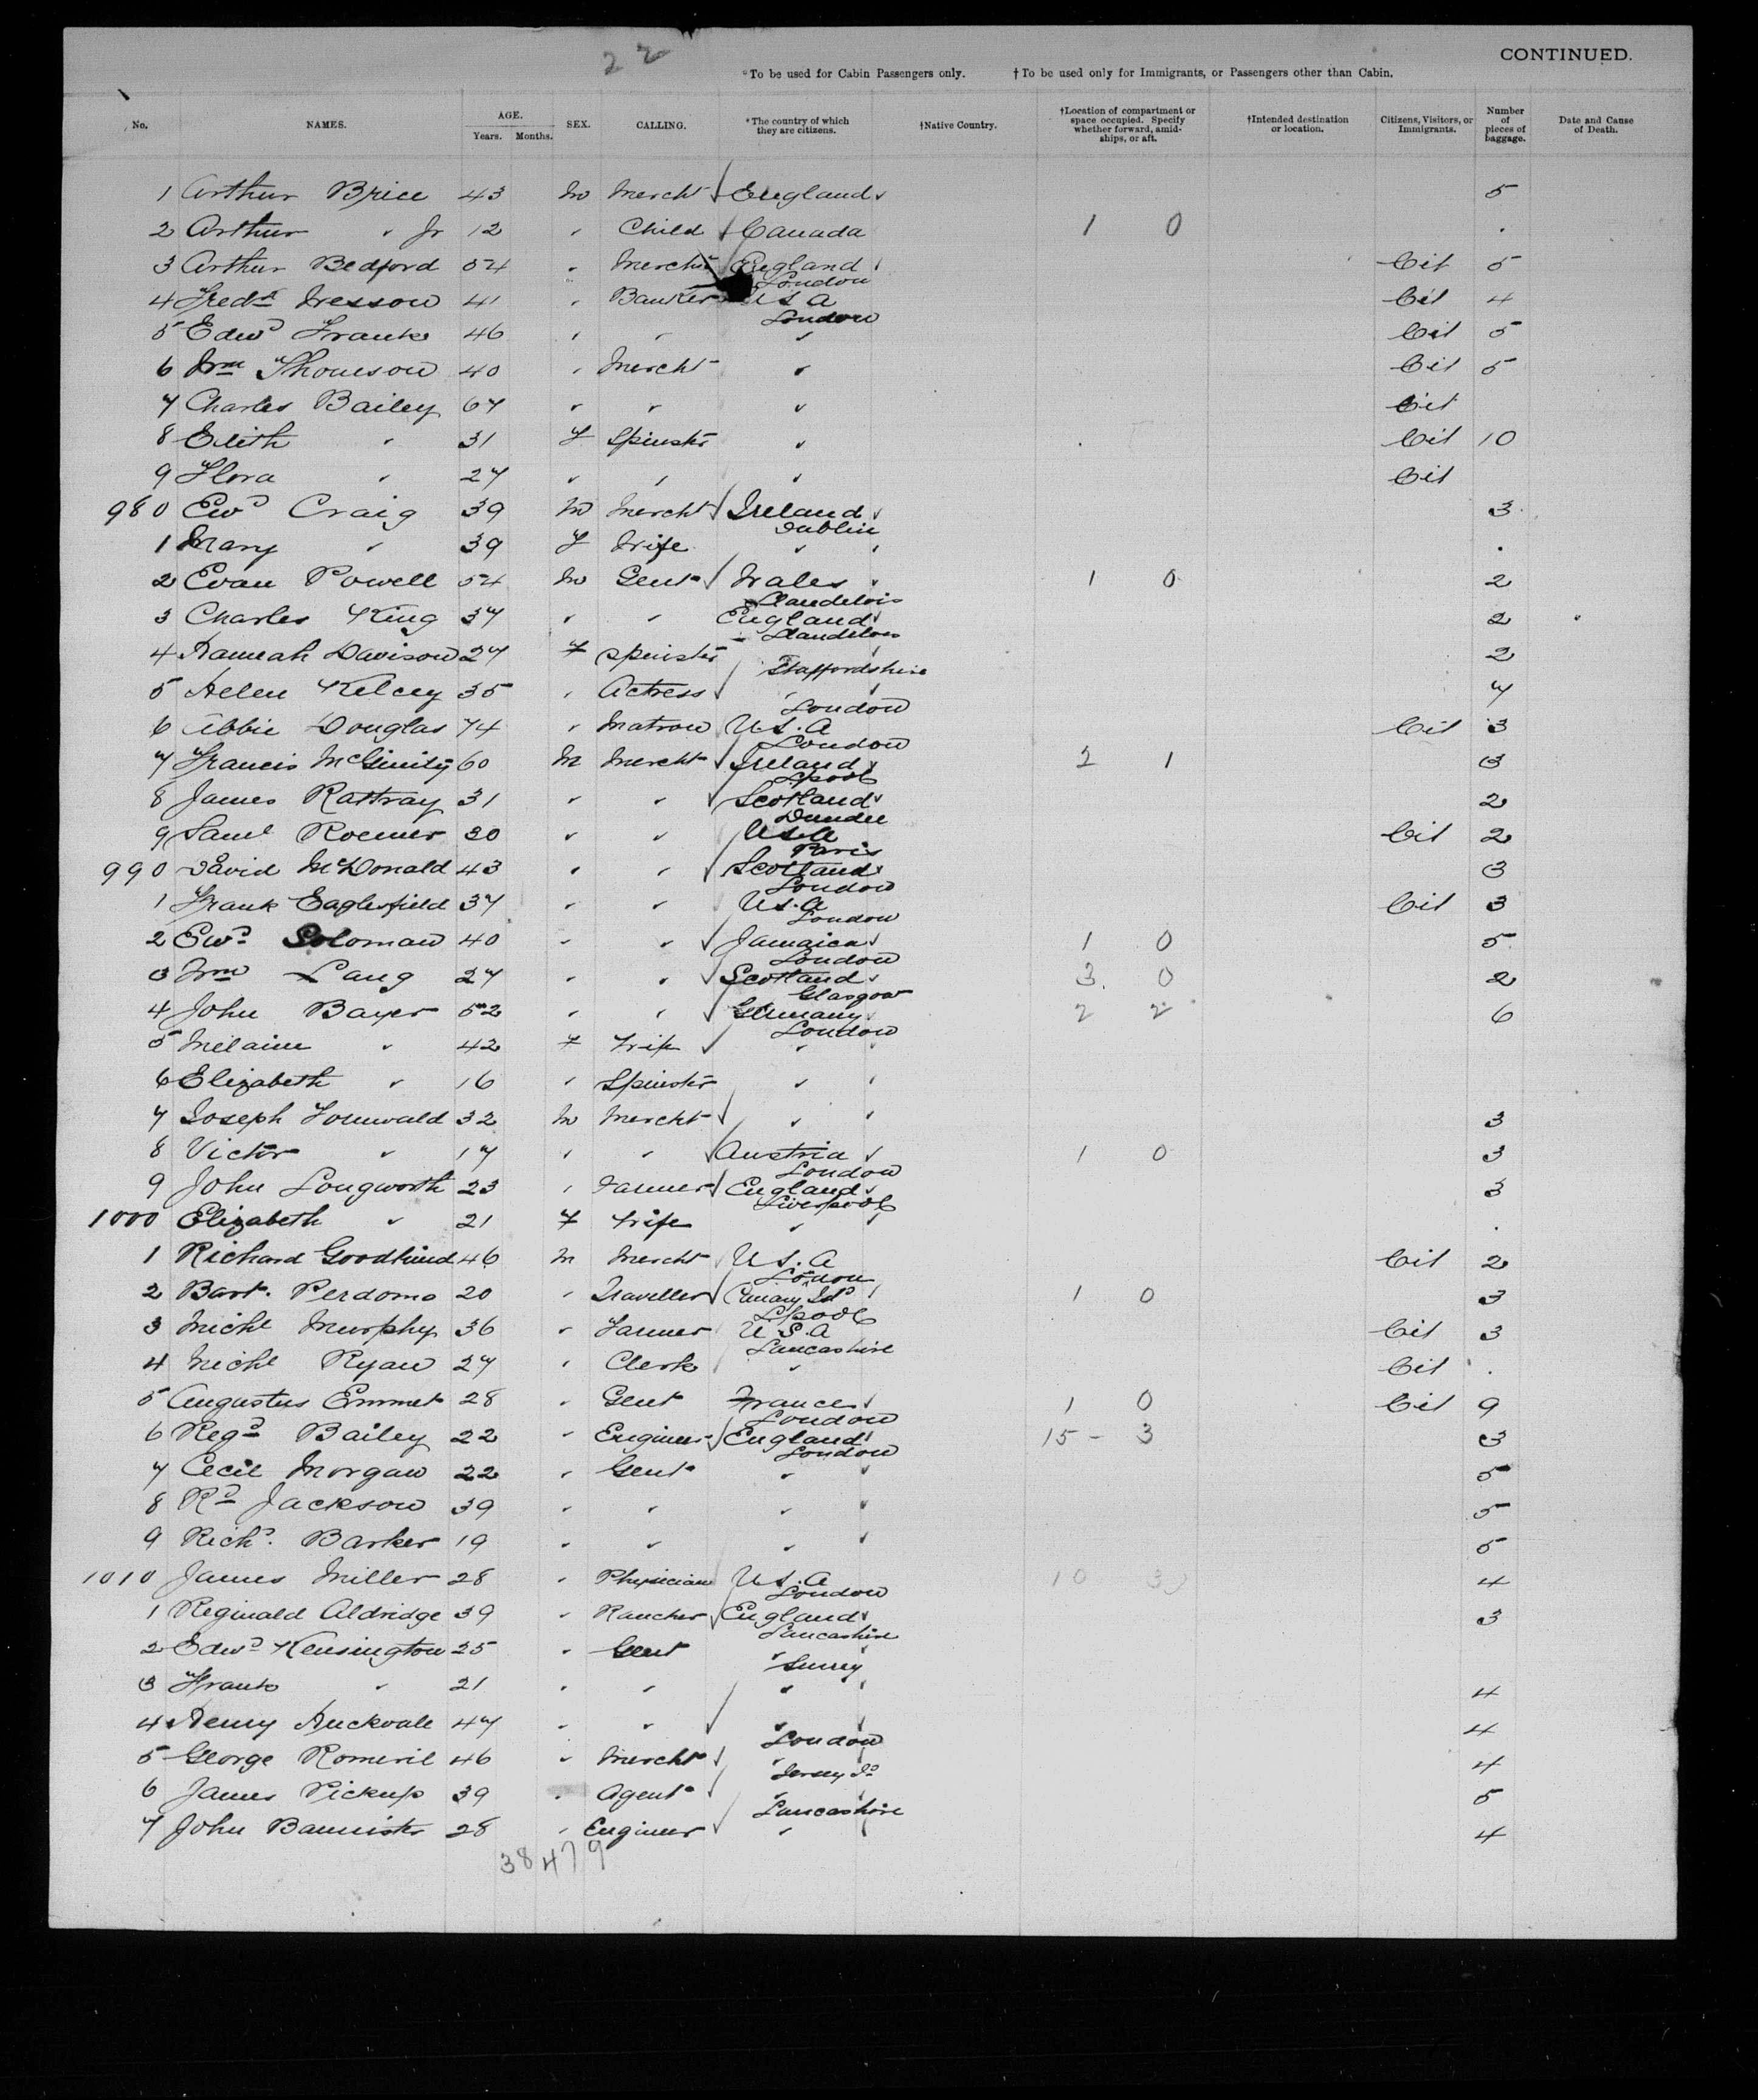 22
CONTINUED.
*To be used for Cabin Passengers only. †To be used only for Immigrants, or Passengers other than Cabin.
No. NAMES. AGE. Years. Months. SEX. CALLING. *The country of which they are citizens. †Native Country. †Location of compartment or space occupied. Specify whether forward, amidships, or aft. †Intended destination or location. Citizens, Visitors, or Immigrants. Number of pieces of baggage. Date and Cause of Death.
1 Arthur Brice 43 M Mercht England 5
2 Arthur " Jr 12 " Child Canada 1 0
3 Arthur Bedford 54 " Mercht England Cit 5
London
4 Fredk Wesson 41 " Banker U S A Cit 4
London
5 Edwd Franks 46 " " " Cit 5
6 Wm Thomson 40 " Mercht " Cit 5
7 Charles Bailey 67 " " " Cit
8 Edith " 31 F Spinstr " Cit 10
9 Flora " 27 " " " Cit
980 Ewd Craig 39 M Mercht Ireland 3
Dublin
1 Mary " 39 F Wife "
2 Evan Powell 54 M Gent Wales 1 0 2
3 Charles King 37 " " England 2
4 Hannah Davison 27 F Spinstr " 2
Staffordshire
5 Helen Kelcey 35 " Actress " 7
London
6 Abbie Douglas 74 " Matron U.S.A Cit 3
London
7 Francis McGinity 60 M Mercht Ireland 2 1 3
Lpool
8 James Rattray 31 " " Scotland 2
Dundee
9 Saml Roemer 30 " " U.S.A Cit 2
Paris
990 David McDonald 43 " " Scotland 3
London
1 Frank Eaglesfield 37 " " U.S.A Cit 3
London
2 Ewd Soloman 40 " " Jamaica 1 0 5
London
3 Wm Lang 27 " " Scotland 3 0 2
Glasgow
4 John Bayer 52 " " Germany 2 2 6
London
5 Melaine " 42 F Wife "
6 Elizabeth " 16 " Spinstr "
7 Joseph Fornwald 32 M Mercht " 3
8 Victor " 17 " " Austria 1 0 3
London
9 John Longworth 23 " Farmer England 3
Liverpool
1000 Elizabeth " 21 F Wife "
1 Richard Goodkind 46 M Mercht U.S.A Cit 2
2 Bart. Perdomo 20 " Traveller Canary Isds 1 0 3
Lpool
3 Michl Murphy 36 " Farmer U.S.A Cit 3
Lancashire
4 Michl Ryan 27 " Clerk " Cit
5 Augustus Emmet 28 " Gent France 1 0 Cit 9
London
6 Regd Bailey 22 " Engineer England 15 - 3 3
London
7 Cecil Morgan 22 " Gent " 5
8 Rd Jackson 39 " " " 5
9 Richd. Barker 19 " " " 5
1010 James Miller 28 " Physician U.S.A 10 3 4
London
1 Reginald Aldridge 39 " Rancher England 3
Lancashire
2 Edwd Kensington 25 " Gent "
Surrey
3 Frank " 21 " " " 4
4 Henry Huckvale 47 " " " 4
London
5 George Romeril 46 " Mercht " 4
Jersey Id
6 James Pickup 39 " Agent " 5
Lancashire
7 John Bannister 28 " Engineer " 4
38479